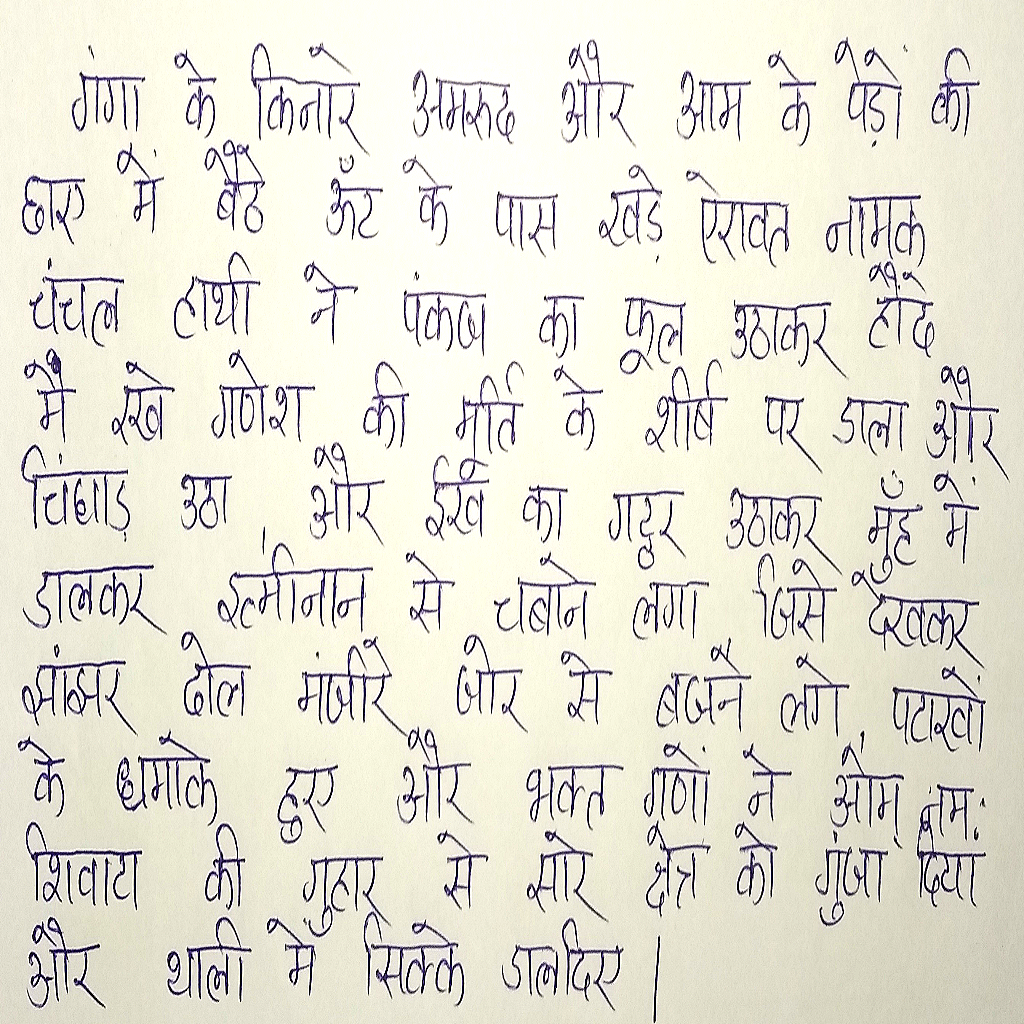 गंगा के किनारे अमरूद और आम के पेड़ों की
छाए में बैठे ऊँट के पास खड़े ऐरावत नामक
चंचल हाथी ने पंकज का फूल उठाकर हौदे
मै रखे गणेश की मूर्ति के शीर्ष पर डाला और
चिंघाड़ उठा, और ईख का गट्ठर उठाकर मुँह में
डालकर इत्मीनान से चबाने लगा जिसे देखकर
झांझर ढोल मंजीरे जोर से बजने लगे, पटाखों
के धमाके हुए और भक्त गणों ने ओम् नमः
शिवाय की गुहार से सारे क्षेत्र को गुंजा दिया
और थाली में सिक्के डालदिए |